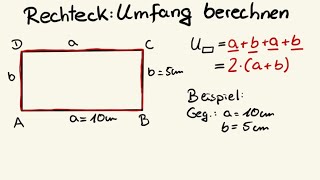 Rechteck: Umfang berechnen
D a C
b b = 5cm
A a = 10cm B
U▭ = a + b + a + b
= 2·(a+b)
Beispiel:
Geg.: a = 10cm
b = 5cm